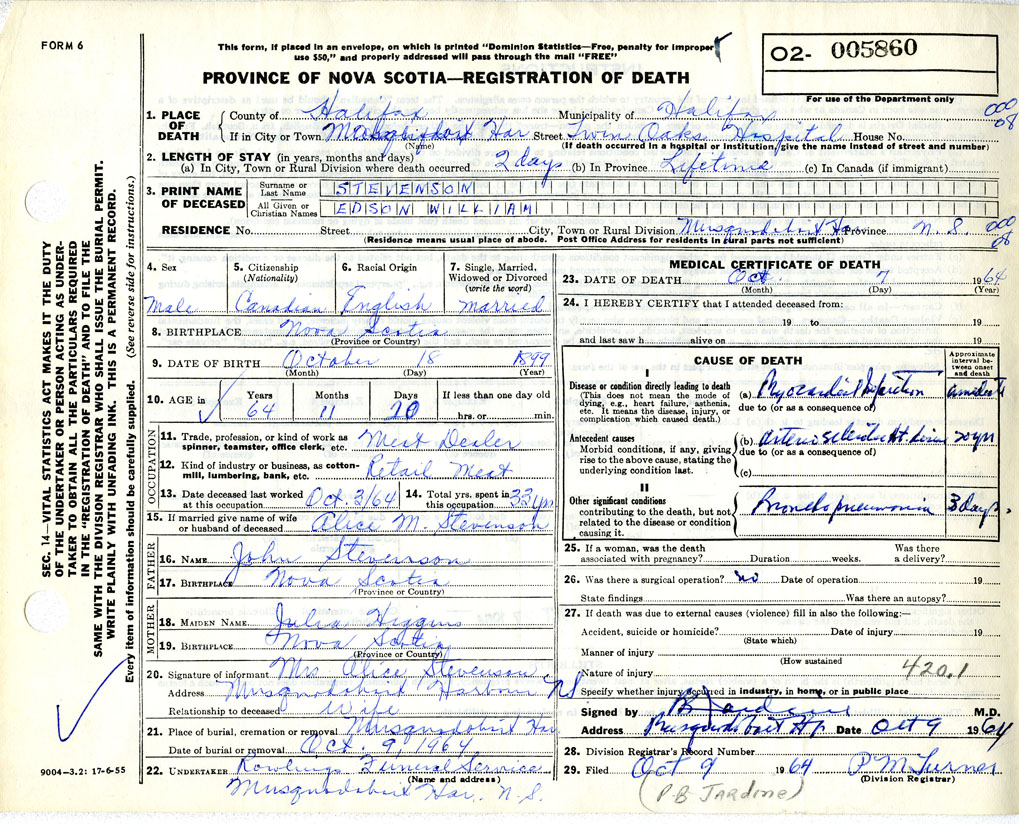 FORM 6
This form, if placed in an envelope, on which is printed "Dominion Statistics—Free, penalty for improper
use $50," and properly addressed will pass through the mail "FREE"
PROVINCE OF NOVA SCOTIA—REGISTRATION OF DEATH
02- 005860
For use of the Department only
SEC. 14—VITAL STATISTICS ACT MAKES IT THE DUTY
OF THE UNDERTAKER OR PERSON ACTING AS UNDER-
TAKER TO OBTAIN ALL THE PARTICULARS REQUIRED
IN THE "REGISTRATION OF DEATH" AND TO FILE THE
SAME WITH THE DIVISION REGISTRAR WHO SHALL ISSUE THE BURIAL PERMIT.
WRITE PLAINLY WITH UNFADING INK. THIS IS A PERMANENT RECORD.
Every item of information should be carefully supplied. (See reverse side for instructions.)
1. PLACE OF DEATH
County of Halifax Municipality of Halifax 000 08
If in City or Town Musquodoboit Har Street Twin Oaks Hospital House No.
(Name) (If death occurred in a hospital or institution, give the name instead of street and number)
2. LENGTH OF STAY (in years, months and days)
(a) In City, Town or Rural Division where death occurred 2 days (b) In Province Lifetime (c) In Canada (if immigrant)
3. PRINT NAME OF DECEASED
Surname or Last Name STEVENSON
All Given or Christian Names EDSON WILLIAM
RESIDENCE No. Street City, Town or Rural Division Musquodoboit Har Province N.S. 000 08
(Residence means usual place of abode. Post Office Address for residents in rural parts not sufficient)
4. Sex Male
5. Citizenship (Nationality) Canadian
6. Racial Origin English
7. Single, Married, Widowed or Divorced (write the word) Married
8. BIRTHPLACE Nova Scotia
(Province or Country)
9. DATE OF BIRTH October 18 1899
(Month) (Day) (Year)
10. AGE in Years 64 Months 11 Days 20 If less than one day old hrs. or min.
OCCUPATION
11. Trade, profession, or kind of work as spinner, teamster, office clerk, etc. Meat Dealer
12. Kind of industry or business, as cotton-mill, lumbering, bank, etc. Retail Meat
13. Date deceased last worked at this occupation Oct 3/64
14. Total yrs. spent in this occupation 33 yrs
15. If married give name of wife or husband of deceased Alice M. Stevenson
FATHER
16. NAME John Stevenson
17. BIRTHPLACE Nova Scotia
(Province or Country)
MOTHER
18. MAIDEN NAME Julia Higgins
19. BIRTHPLACE Nova Scotia
(Province or Country)
20. Signature of informant Mrs Alice Stevenson
Address Musquodoboit Harbour NS
Relationship to deceased Wife
21. Place of burial, cremation or removal Musquodoboit Har
Date of burial or removal Oct. 9 1964
22. UNDERTAKER Rowlings Funeral Service
(Name and address)
Musquodoboit Har. N.S.
9004—3.2: 17-6-55
MEDICAL CERTIFICATE OF DEATH
23. DATE OF DEATH Oct. 7 1964
(Month) (Day) (Year)
24. I HEREBY CERTIFY that I attended deceased from:
19 to 19
and last saw h alive on 19
CAUSE OF DEATH
Approximate interval between onset and death
I
Disease or condition directly leading to death
(This does not mean the mode of dying, e.g., heart failure, asthenia, etc. It means the disease, injury, or complication which caused death.)
(a) Myocardial Infarction
due to (or as a consequence of)
Antecedent causes
Morbid conditions, if any, giving rise to the above cause, stating the underlying condition last.
(b) Arteriosclerotic Ht. 20 yrs
due to (or as a consequence of)
(c)
II
Other significant conditions
contributing to the death, but not related to the disease or condition causing it.
Bronchopneumonia 3 days.
25. If a woman, was the death associated with pregnancy? Duration weeks. Was there a delivery?
26. Was there a surgical operation? no Date of operation 19
State findings Was there an autopsy?
27. If death was due to external causes (violence) fill in also the following:—
Accident, suicide or homicide? Date of injury 19
(State which)
Manner of injury
(How sustained
Nature of injury 420.1
Specify whether injury occurred in industry, in home, or in public place
Signed by B Jardine M.D.
Address Musquodoboit Hr. Date Oct 9 1964
28. Division Registrar's Record Number
29. Filed Oct 9 1964 P M Turner
(Division Registrar)
(P.B JARDINE)